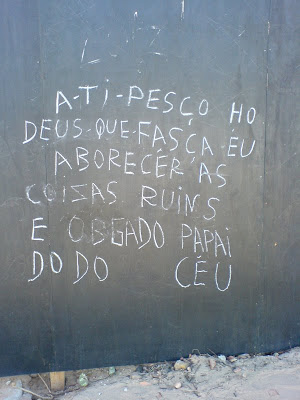 A-TI-PESÇO HO
DEUS-QUE-FASÇA-EU
ABORECÉR AS
COIZAS RUINS
E OBGADO PAPAI
DODO CÉU